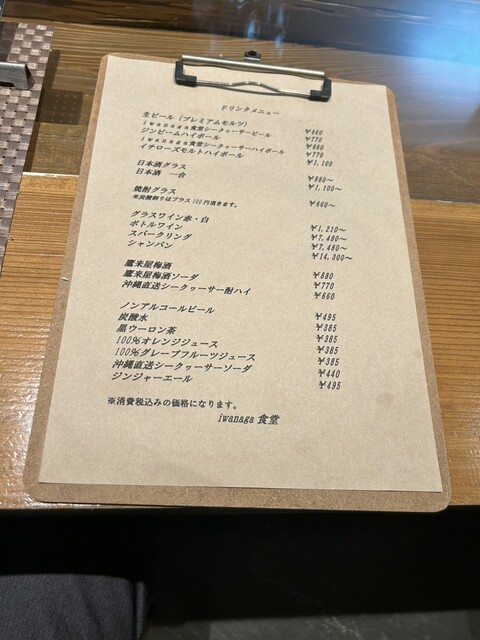 ドリンクメニュー
生ビール (プレミアムモルツ) ¥880
iwanaga食堂シークヮーサービール ¥770
ジンビームハイボール ¥660
iwanaga食堂シークヮーサーハイボール ¥770
イチローズモルトハイボール ¥1,100
日本酒グラス ¥880～
日本酒 一合 ¥1,100～
焼酎グラス ¥660～
※炭酸割りはプラス100円頂きます。
グラスワイン赤・白 ¥1,210～
ボトルワイン ¥7,480～
スパークリング ¥7,480～
シャンパン ¥14,300～
鷹来屋梅酒 ¥880
鷹来屋梅酒ソーダ ¥770
沖縄直送シークヮーサー酎ハイ ¥660
ノンアルコールビール ¥495
炭酸水 ¥385
黒ウーロン茶 ¥385
100%オレンジジュース ¥385
100%グレープフルーツジュース ¥385
沖縄直送シークヮーサーソーダ ¥440
ジンジャーエール ¥495
※消費税込みの価格になります。
iwanaga 食堂